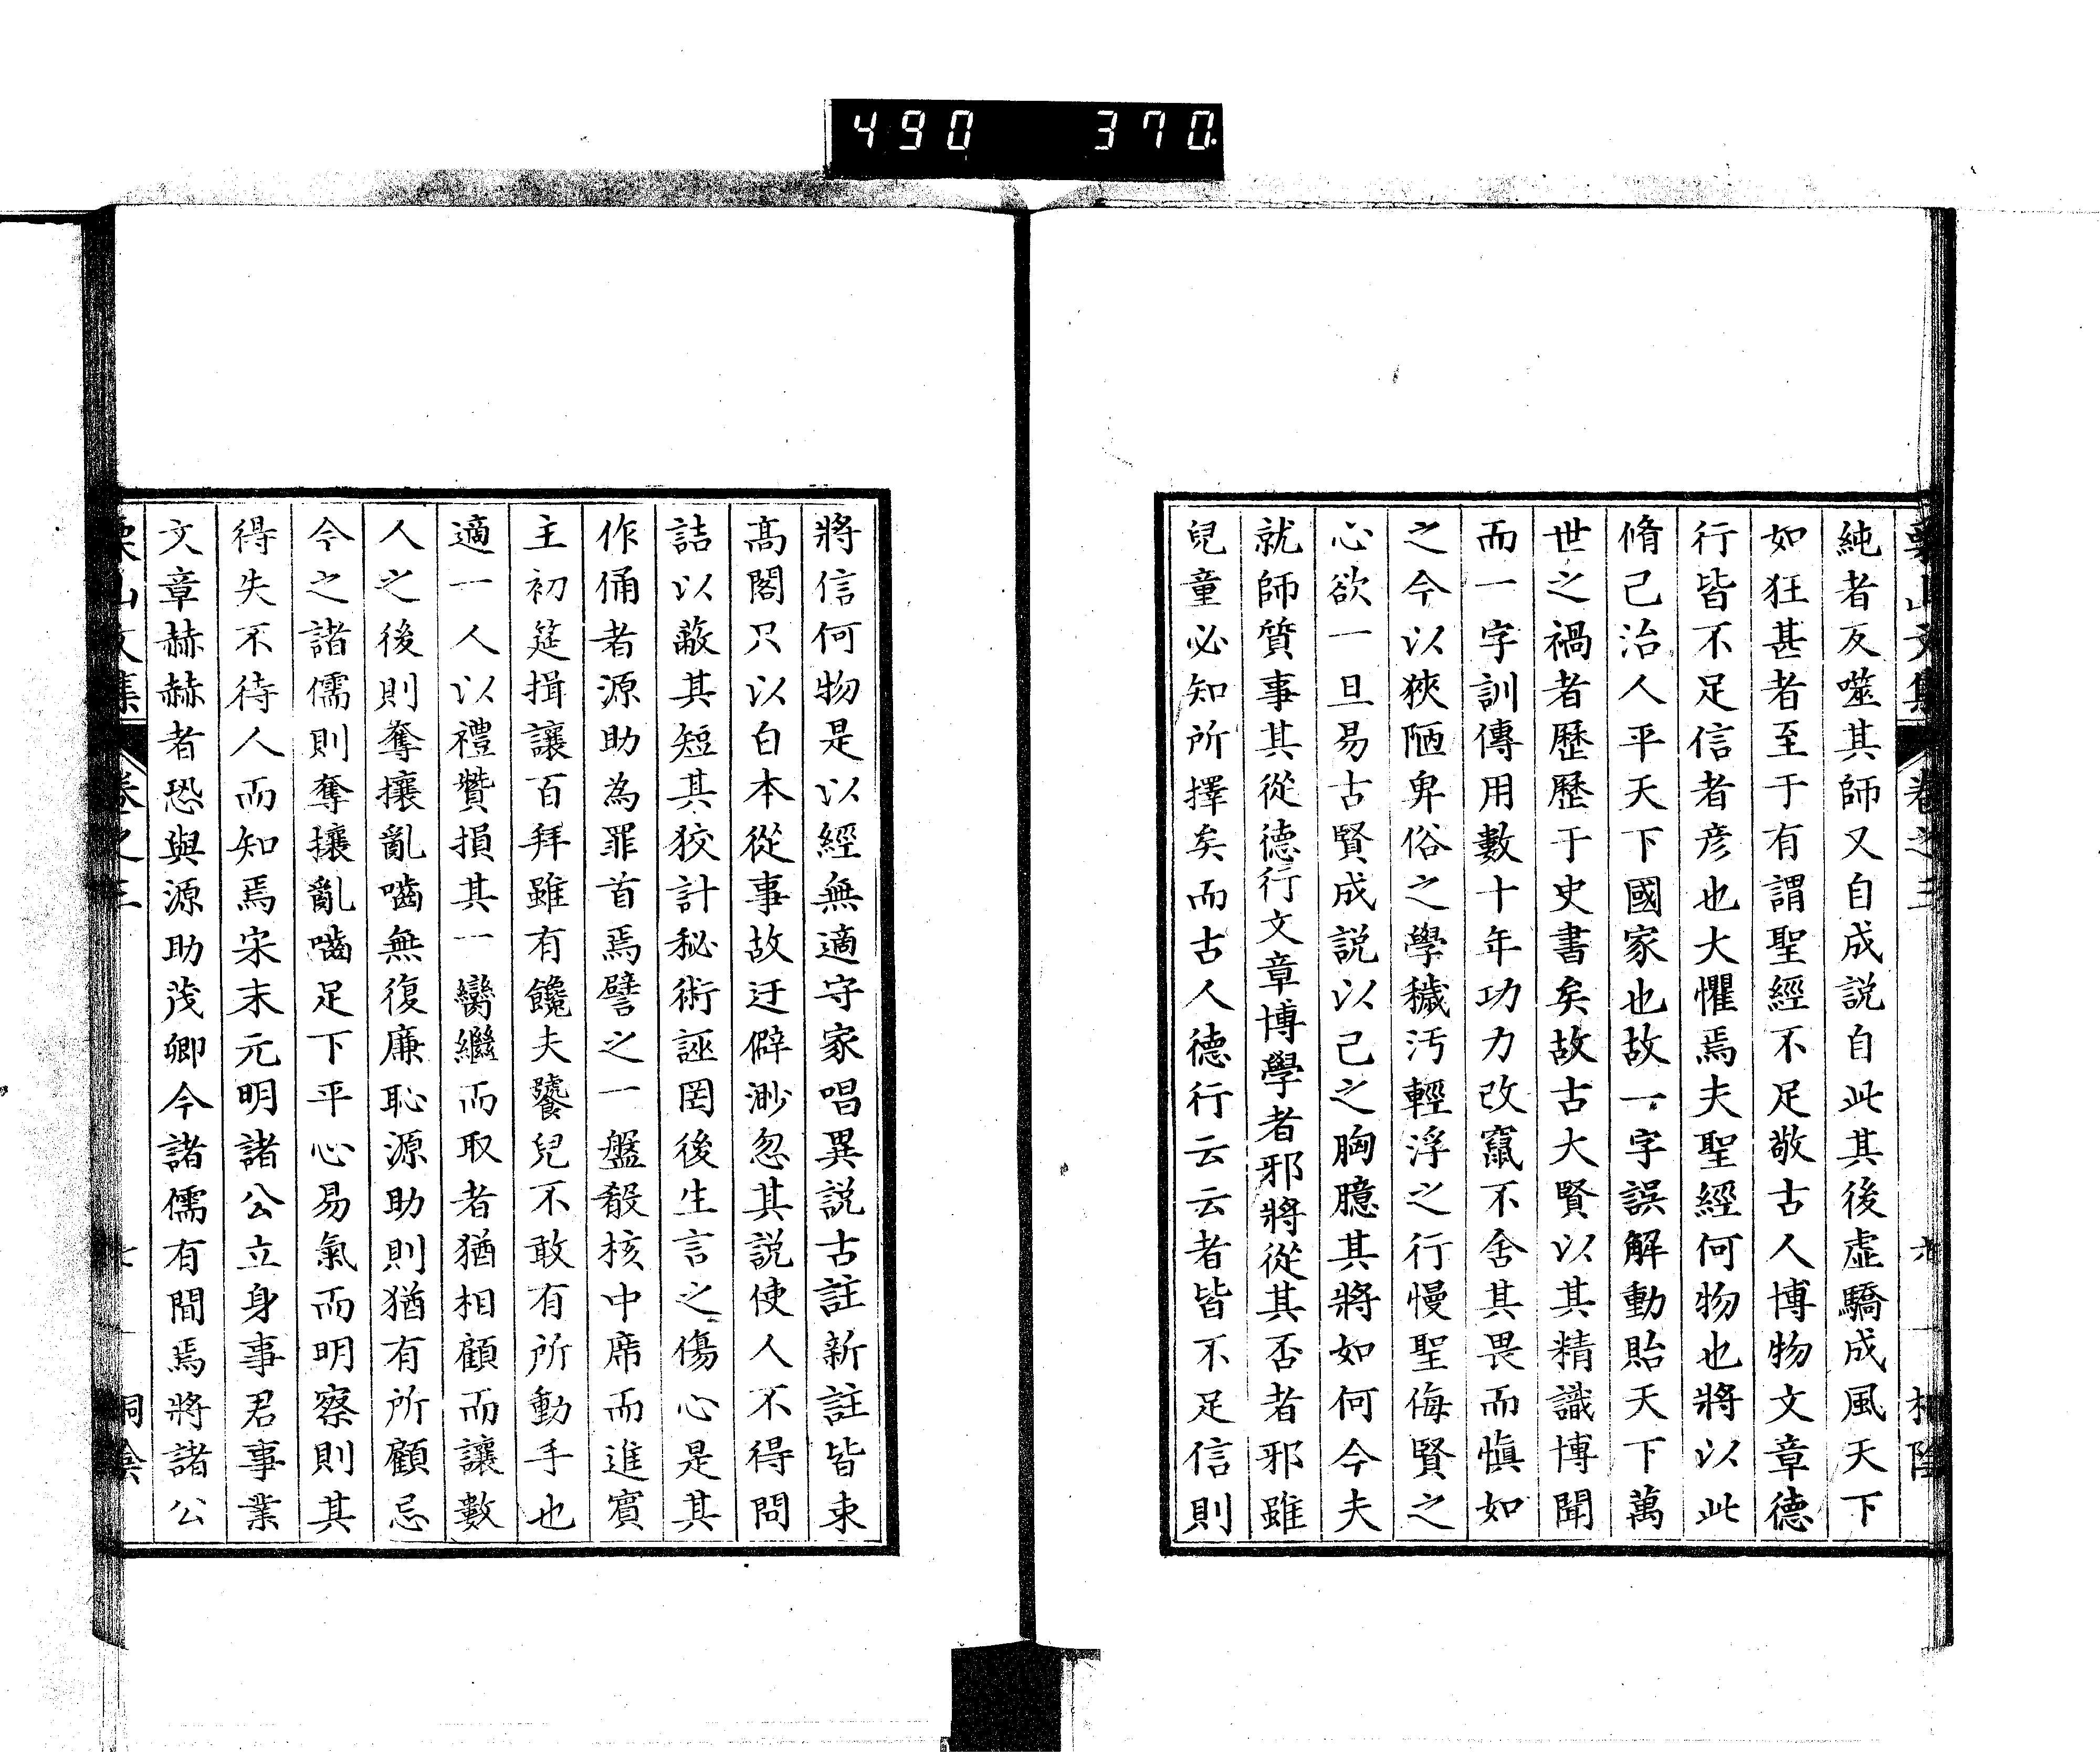 490 370
純者反噬其師又自成説自此其後虛驕成風天下
如狂甚者至于有謂聖經不足敬古人博物文章德
行皆不足信者彦也大懼焉夫聖經何物也將以此
脩己治人平天下國家也故一字誤解動貽天下萬
世之禍者歷歷于史書矣故古大賢以其精識博聞
而一字訓傳用數十年功力改竄不舍其畏而慎如
之今以狹陋卑俗之學穢汚輕浮之行慢聖侮賢之
心欲一旦易古賢成説以己之胸臆其將如何今夫
就師質事其從德行文章博學者邪將從其否者邪雖
兒童必知所擇矣而古人德行云云者皆不足信則
將信何物是以經無適守家唱異説古註新註皆束
髙閣只以白本從事故迂僻渺忽其説使人不得問
詰以蔽其短其狡計秘術誣罔後生言之傷心是其
作俑者源助為罪首焉譬之一盤殽核中席而進賓
主初筵揖讓百拜雖有饞夫饕兒不敢有所動手也
適一人以禮贊損其一臠繼而取者猶相顧而讓數
人之後則奪攘亂嚙無復廉恥源助則猶有所顧忌
今之諸儒則奪攘亂嚙足下平心易氣而明察則其
得失不待人而知焉宋末元明諸公立身事君事業
文章赫赫者恐與源助茂卿今諸儒有間焉將諸公
栗山文集 卷之三 七 桐陰